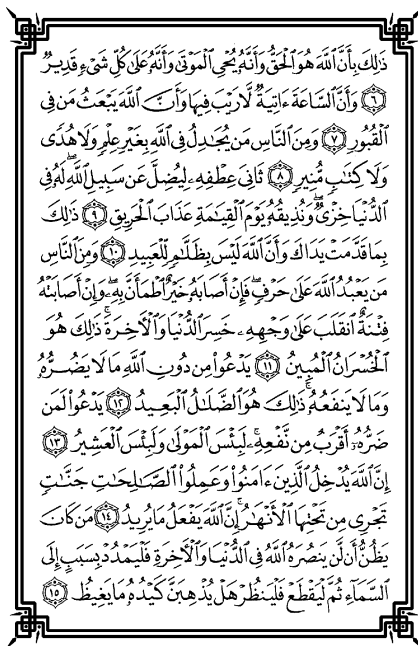 ذَٰلِكَ بِأَنَّ ٱللَّهَ هُوَ ٱلْحَقُّ وَأَنَّهُۥ يُحْىِ ٱلْمَوْتَىٰ وَأَنَّهُۥ عَلَىٰ كُلِّ شَىْءٍ قَدِيرٌ
۝٦ وَأَنَّ ٱلسَّاعَةَ ءَاتِيَةٌ لَّا رَيْبَ فِيهَا وَأَنَّ ٱللَّهَ يَبْعَثُ مَن فِى
ٱلْقُبُورِ ۝٧ وَمِنَ ٱلنَّاسِ مَن يُجَٰدِلُ فِى ٱللَّهِ بِغَيْرِ عِلْمٍ وَلَا هُدًى
وَلَا كِتَٰبٍ مُّنِيرٍ ۝٨ ثَانِىَ عِطْفِهِۦ لِيُضِلَّ عَن سَبِيلِ ٱللَّهِ ۖ لَهُۥ فِى
ٱلدُّنْيَا خِزْىٌ ۖ وَنُذِيقُهُۥ يَوْمَ ٱلْقِيَٰمَةِ عَذَابَ ٱلْحَرِيقِ ۝٩ ذَٰلِكَ
بِمَا قَدَّمَتْ يَدَاكَ وَأَنَّ ٱللَّهَ لَيْسَ بِظَلَّٰمٍ لِّلْعَبِيدِ ۝١٠ وَمِنَ ٱلنَّاسِ
مَن يَعْبُدُ ٱللَّهَ عَلَىٰ حَرْفٍ ۖ فَإِنْ أَصَابَهُۥ خَيْرٌ ٱطْمَأَنَّ بِهِۦ ۖ وَإِنْ أَصَابَتْهُ
فِتْنَةٌ ٱنقَلَبَ عَلَىٰ وَجْهِهِۦ خَسِرَ ٱلدُّنْيَا وَٱلْءَاخِرَةَ ۚ ذَٰلِكَ هُوَ
ٱلْخُسْرَانُ ٱلْمُبِينُ ۝١١ يَدْعُوا۟ مِن دُونِ ٱللَّهِ مَا لَا يَضُرُّهُۥ
وَمَا لَا يَنفَعُهُۥ ۚ ذَٰلِكَ هُوَ ٱلضَّلَٰلُ ٱلْبَعِيدُ ۝١٢ يَدْعُوا۟ لَمَن
ضَرُّهُۥٓ أَقْرَبُ مِن نَّفْعِهِۦ ۚ لَبِئْسَ ٱلْمَوْلَىٰ وَلَبِئْسَ ٱلْعَشِيرُ ۝١٣
إِنَّ ٱللَّهَ يُدْخِلُ ٱلَّذِينَ ءَامَنُوا۟ وَعَمِلُوا۟ ٱلصَّٰلِحَٰتِ جَنَّٰتٍ
تَجْرِى مِن تَحْتِهَا ٱلْأَنْهَٰرُ ۚ إِنَّ ٱللَّهَ يَفْعَلُ مَا يُرِيدُ ۝١٤ مَن كَانَ
يَظُنُّ أَن لَّن يَنصُرَهُ ٱللَّهُ فِى ٱلدُّنْيَا وَٱلْءَاخِرَةِ فَلْيَمْدُدْ بِسَبَبٍ إِلَى
ٱلسَّمَآءِ ثُمَّ لْيَقْطَعْ فَلْيَنظُرْ هَلْ يُذْهِبَنَّ كَيْدُهُۥ مَا يَغِيظُ ۝١٥